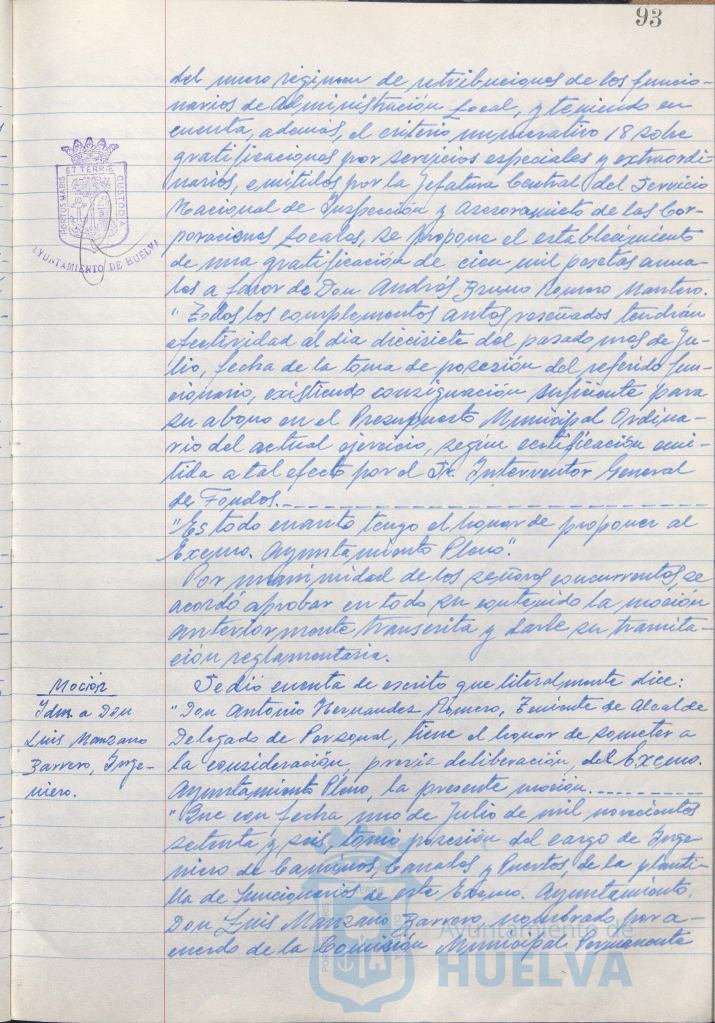 93
del nuevo régimen de retribuciones de los funcio-
narios de Administración Local, y teniendo en
cuenta, además, el criterio numerativo 18 sobre
gratificaciones por servicios especiales y extraordi-
narios, emitidos por la Jefatura Central del Servicio
Nacional de Inspección y Asesoramieto de las Cor-
poraciones Locales, se propone el establecimiento
de una gratificación de cien mil pesetas anua-
les a favor de Don Andrés Bruno Romero Mantero.
"Todos los complementos antes reseñados tendrán
efectividad al dia diecisiete del pasado mes de Ju-
lio, fecha de la toma de posesión del referido fun-
cionario, existiendo consignación suficiente para
su abono en el Presupuesto Municipal Ordina-
rio del actual ejercicio, segun certificación emi-
tida a tal efecto por el Sr. Interventor General
de Fondos.-
"Es todo cuanto tengo el honor de proponer al
Excmo. Ayuntamiento Pleno".
Por unanimidad de los señores concurrentes, se
acordó aprobar en todo su contenido la moción
anteriormente transcrita y darle su tramita-
ción reglamentaria.
Moción
Idm. a Don
Luis Manzano
Barrero, Inge-
niero.
Se dió cuenta de escrito que literalmente dice:
"Don Antonio Hernandez Romero, Teniente de Alcalde
Delegado de Personal, tiene el honor de someter a
la consideración, previa deliberación, del Excmo.
Ayuntamiento Pleno, la presente moción.-
"Que con fecha uno de Julio de mil novecientos
setenta y seis, tomó posesión del cargo de Inge-
niero de Caminos, Canales y Puertos, de la planti-
lla de funcionarios de este Excmo. Ayuntamiento,
Don Luis Manzano Barrero, nombrado por a-
cuerdo de la Comisión Municipal Permanente
PORTUS MARIS
ET TERRÆ
CUSTODIA
AYUNTAMIENTO DE HUELVA
Ayuntamiento de
HUELVA